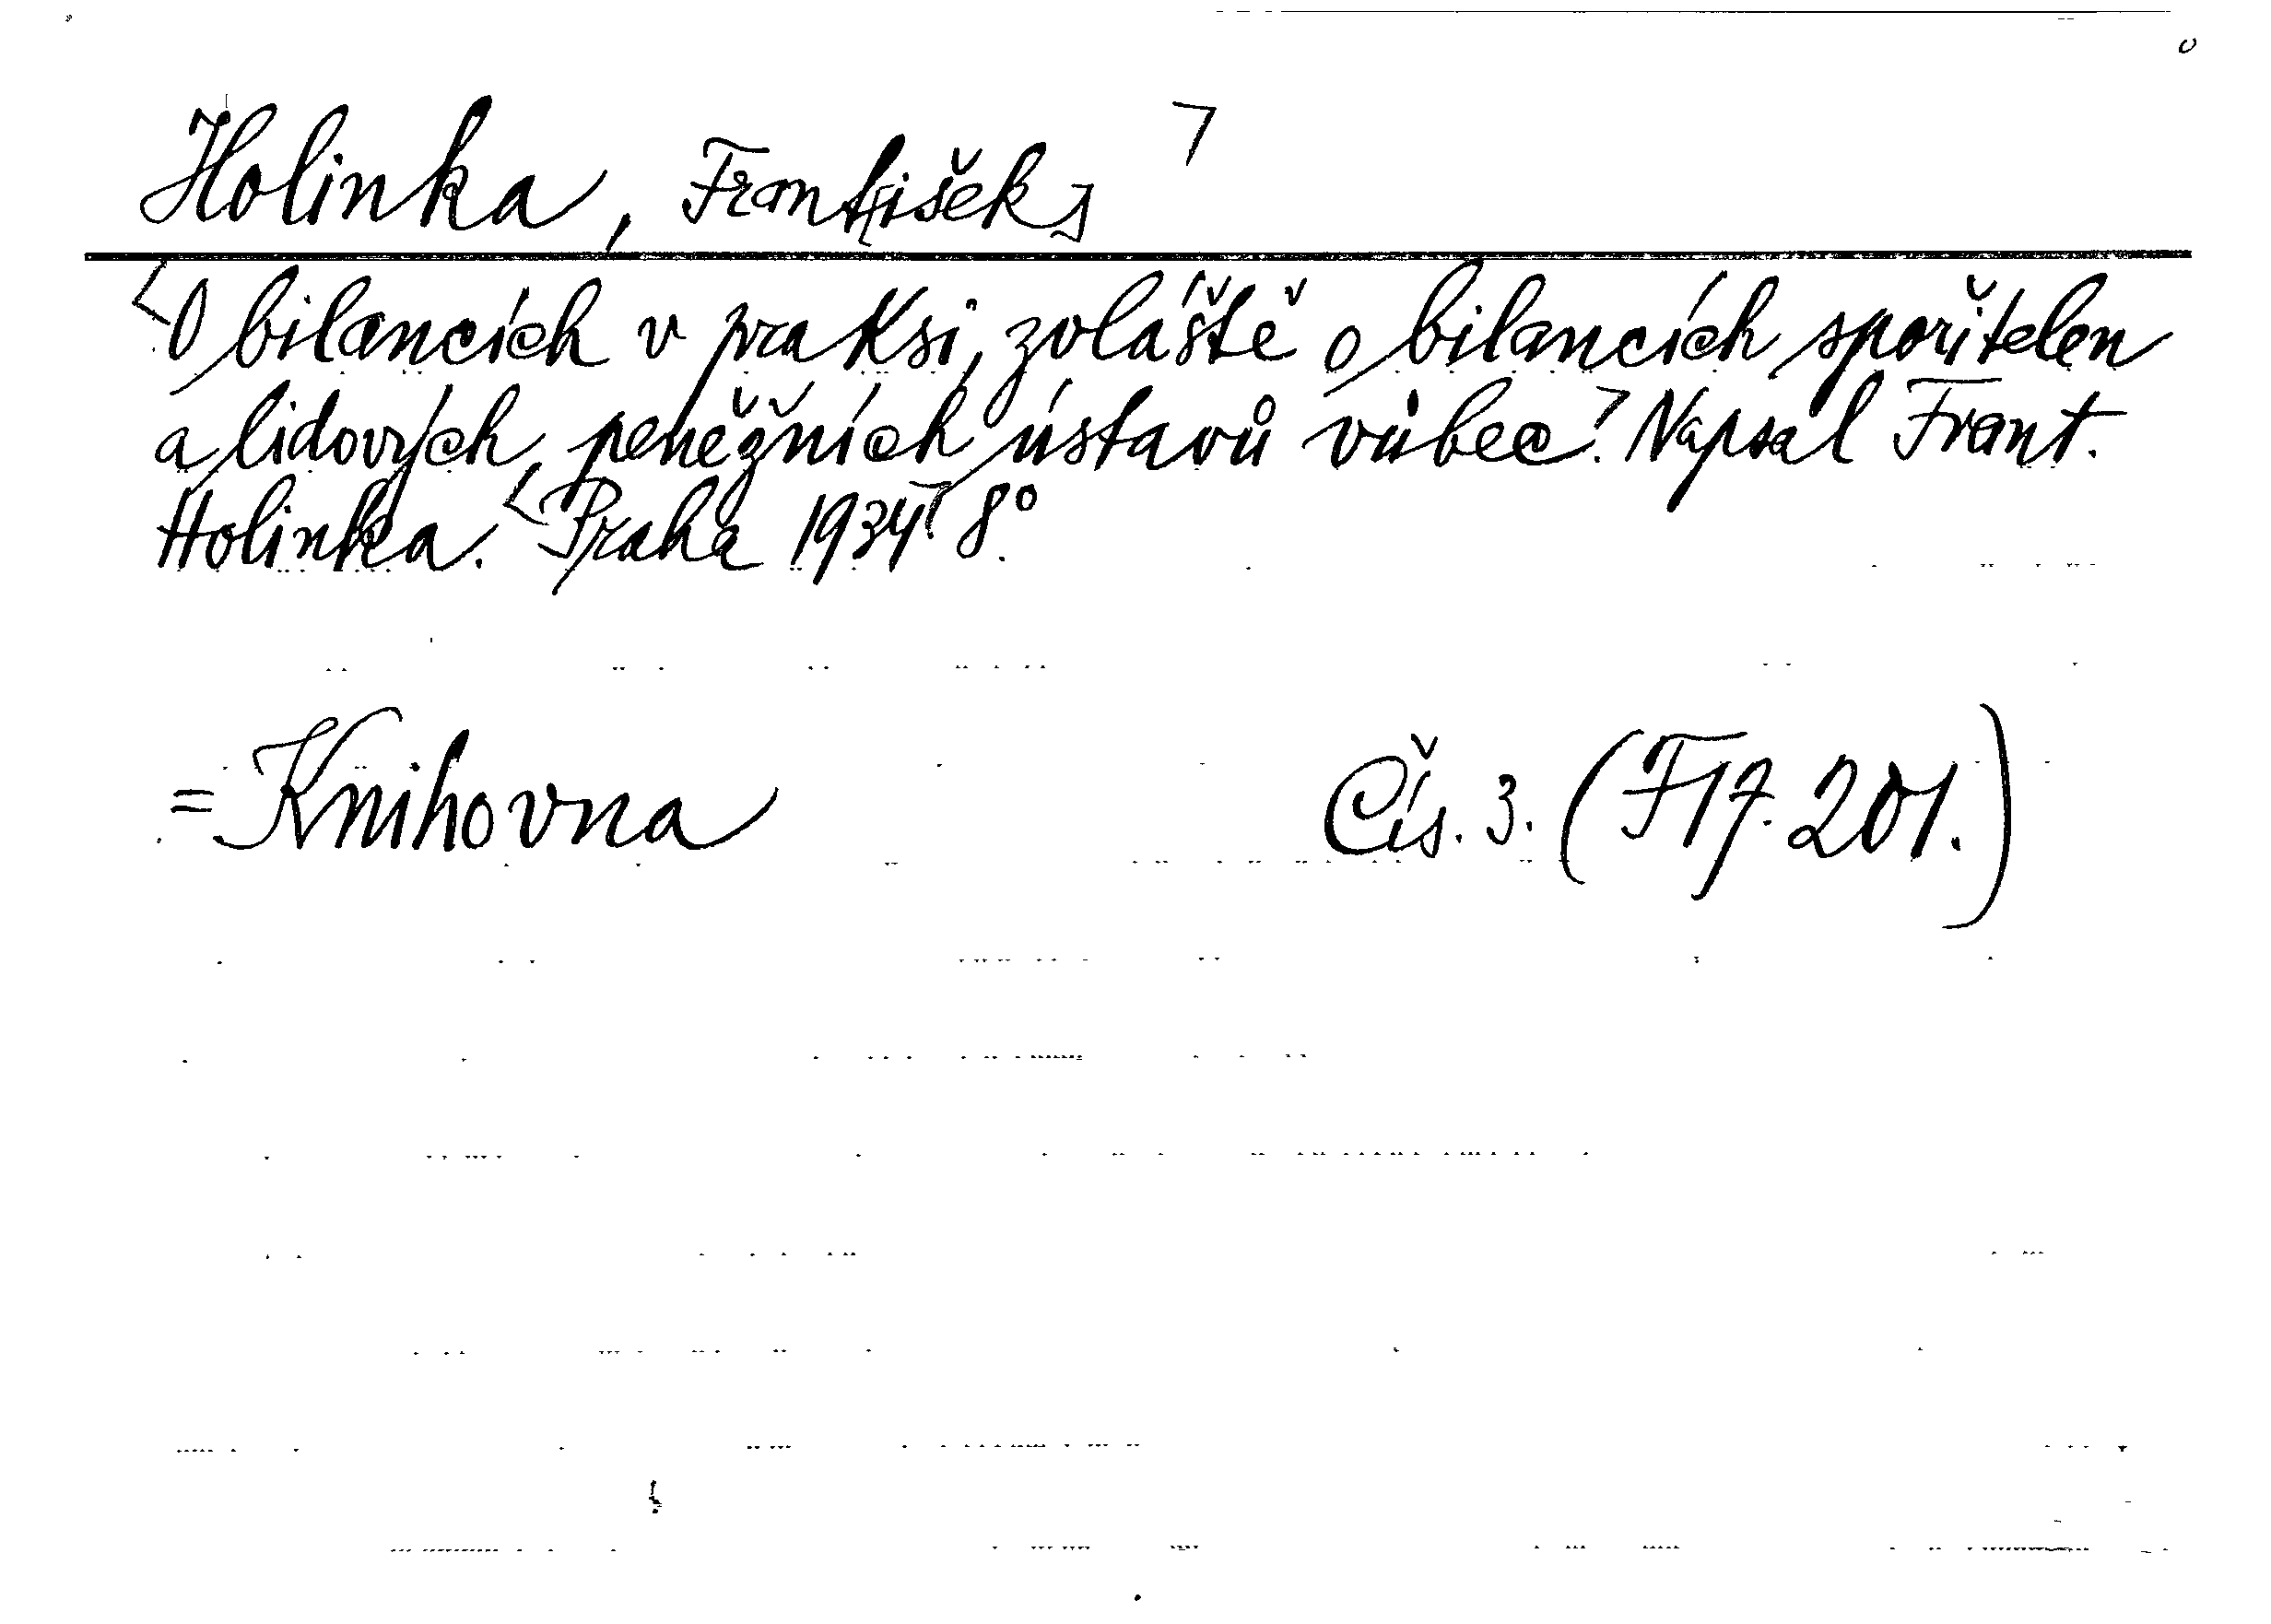 Holinka, František
O bilancích v praksi, zvláště o bilancích spořitelen
a lidových peněžních ústavů vůbec. Napsal Frant.
Holinka. Praha 1934. 8°.
= Knihovna Čís. 3. (F 17. 201.)